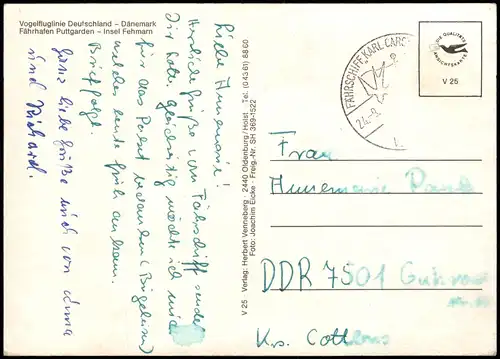 Vogelfluglinie Deutschland – Dänemark
Fährhafen Puttgarden – Insel Fehmarn
Liebe Annemarie!
Herzliche Grüße vom Fährschiff sendet
Dir Lothar. Gleichzeitig möchte ich mich
für das Paket bedanken (Bügeleisen)
welches heute früh ankam.
Brief folgt.
Ganz liebe Grüße auch von Anna
und Richard.
V 25 Verlag: Herbert Venneberg, 2440 Oldenburg/Holst · Tel. (0 43 61) 88 60
Foto: Joachim Eicke - Freig.-Nr. SH 369-1522
FÄHRSCHIFF KARL CARS
24.-8.
DIE QUALITÄTS
ANSICHTSKARTE
V 25
Frau
Annemarie
DDR 7501
Krs. Cottbus